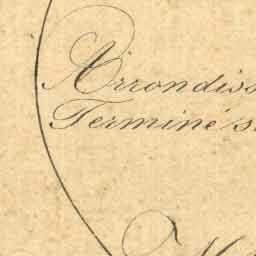 Arrondiss
Terminé s